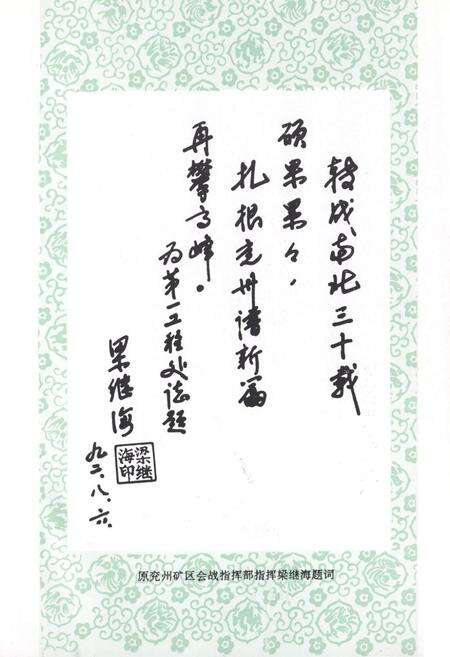 转战南北三十载
硕果累々，
扎根兖州谱新篇
再攀高峰。
为第一工程处志题
梁继海
梁继
海印
九二.八.六.
原兖州矿区会战指挥部指挥梁继海题词